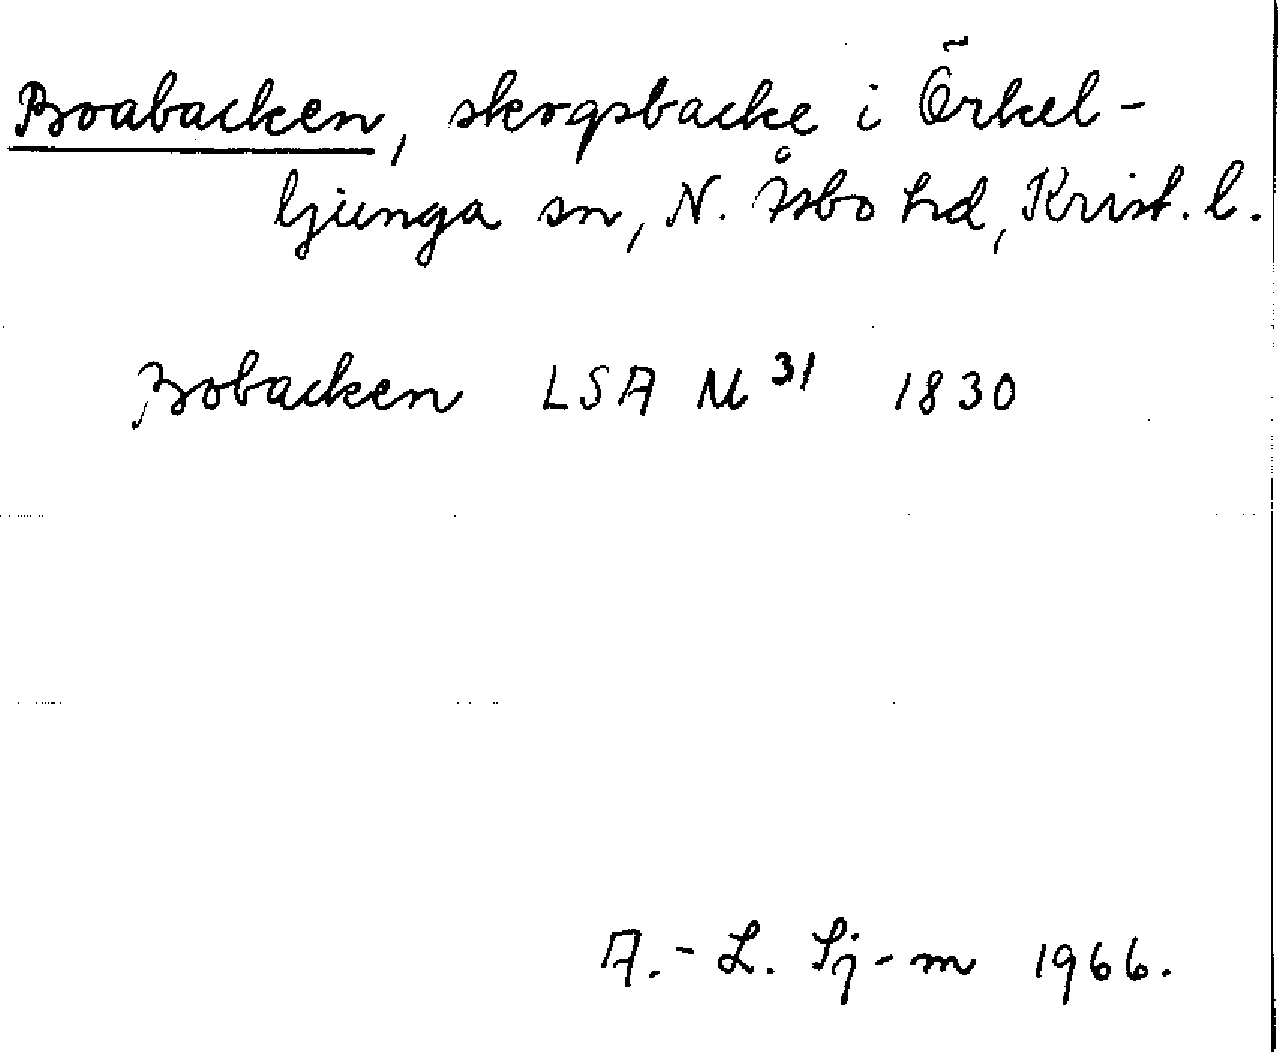 Boabacken, skogsbacke i Örkel-
ljunga sn, N. Åsbo hd, Krist. l.
Bobacken LSA M 31 1830
A.-L. Sj-m 1966.